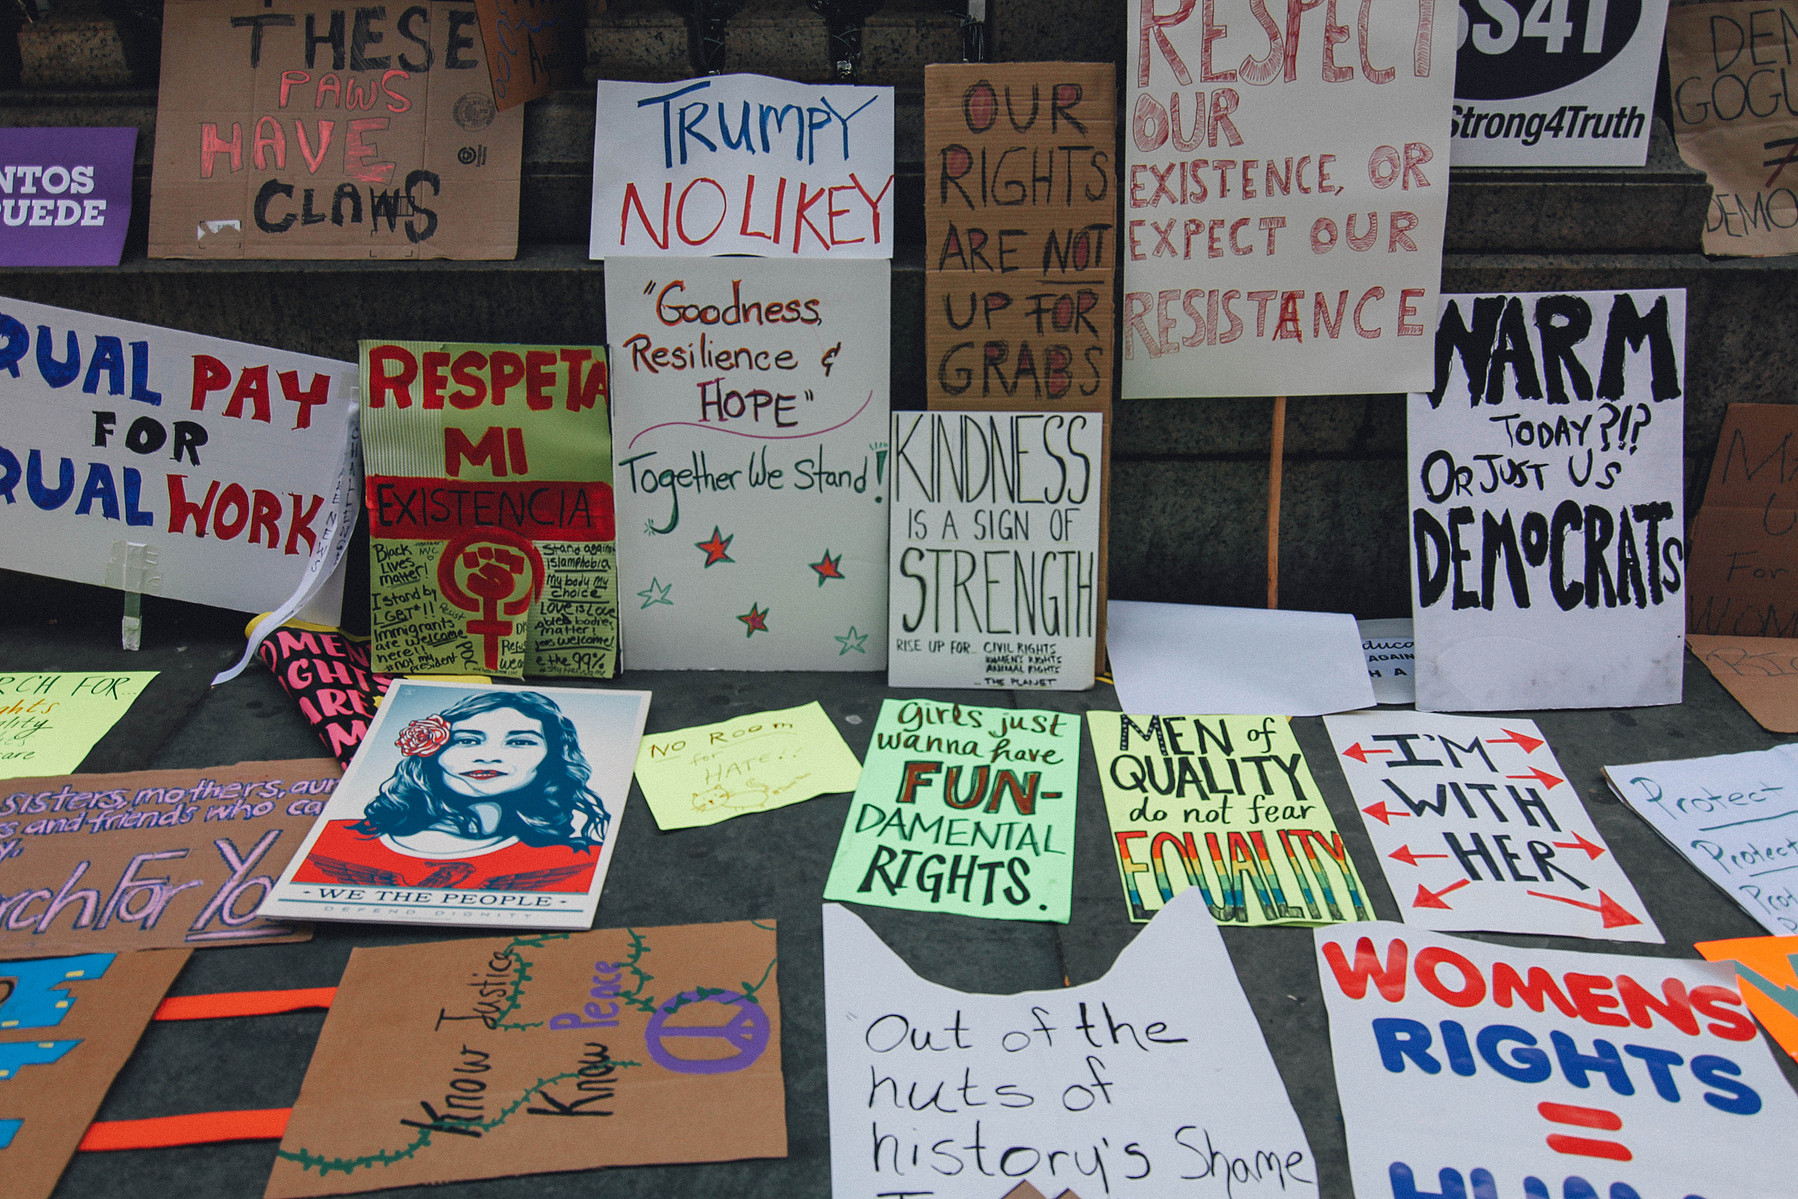 THESE
PAWS
HAVE
CLAWS
NTOS
PUEDE
TRUMPY
NO LIKEY
OUR
RIGHTS
ARE NOT
UP FOR
GRABS
RESPECT
OUR
EXISTENCE, OR
EXPECT OUR
RESISTANCE
SS4T
Strong4Truth
DEM
GOGU
DEMO
QUAL PAY
FOR
QUAL WORK
RESPETA
MI
EXISTENCIA
Black
Lives
matter!
I stand by
LGBT*!!
Immigrants
are welcome
here!!
#not my
president
Stand against
islamphobia
My body my
choice
Love is Love
abled bodies
matter!
& the 99%
"Goodness,
Resilience &
HOPE"
Together We Stand!
KINDNESS
IS A SIGN OF
STRENGTH
RISE UP FOR... CIVIL RIGHTS
WOMEN'S RIGHTS
ANIMAL RIGHTS
...THE PLANET
WARM
TODAY?!?
OR JUST US
DEMOCRATS
For
OMEN
IGHTS
ARE
RCH FOR...
ghts
lity
care
sisters, mothers, aun
s and friends who ca
rch For Yo
WE THE PEOPLE
DEFEND DIGNITY
NO ROOM
for
HATE!!
Girls just
wanna have
FUN-
DAMENTAL
RIGHTS.
MEN of
QUALITY
do not fear
EQUALITY
I'M
WITH
HER
Protect
Protect
Prot
Know Justice
Know Peace
Out of the
huts of
history's Shame
WOMENS
RIGHTS
=
HUM